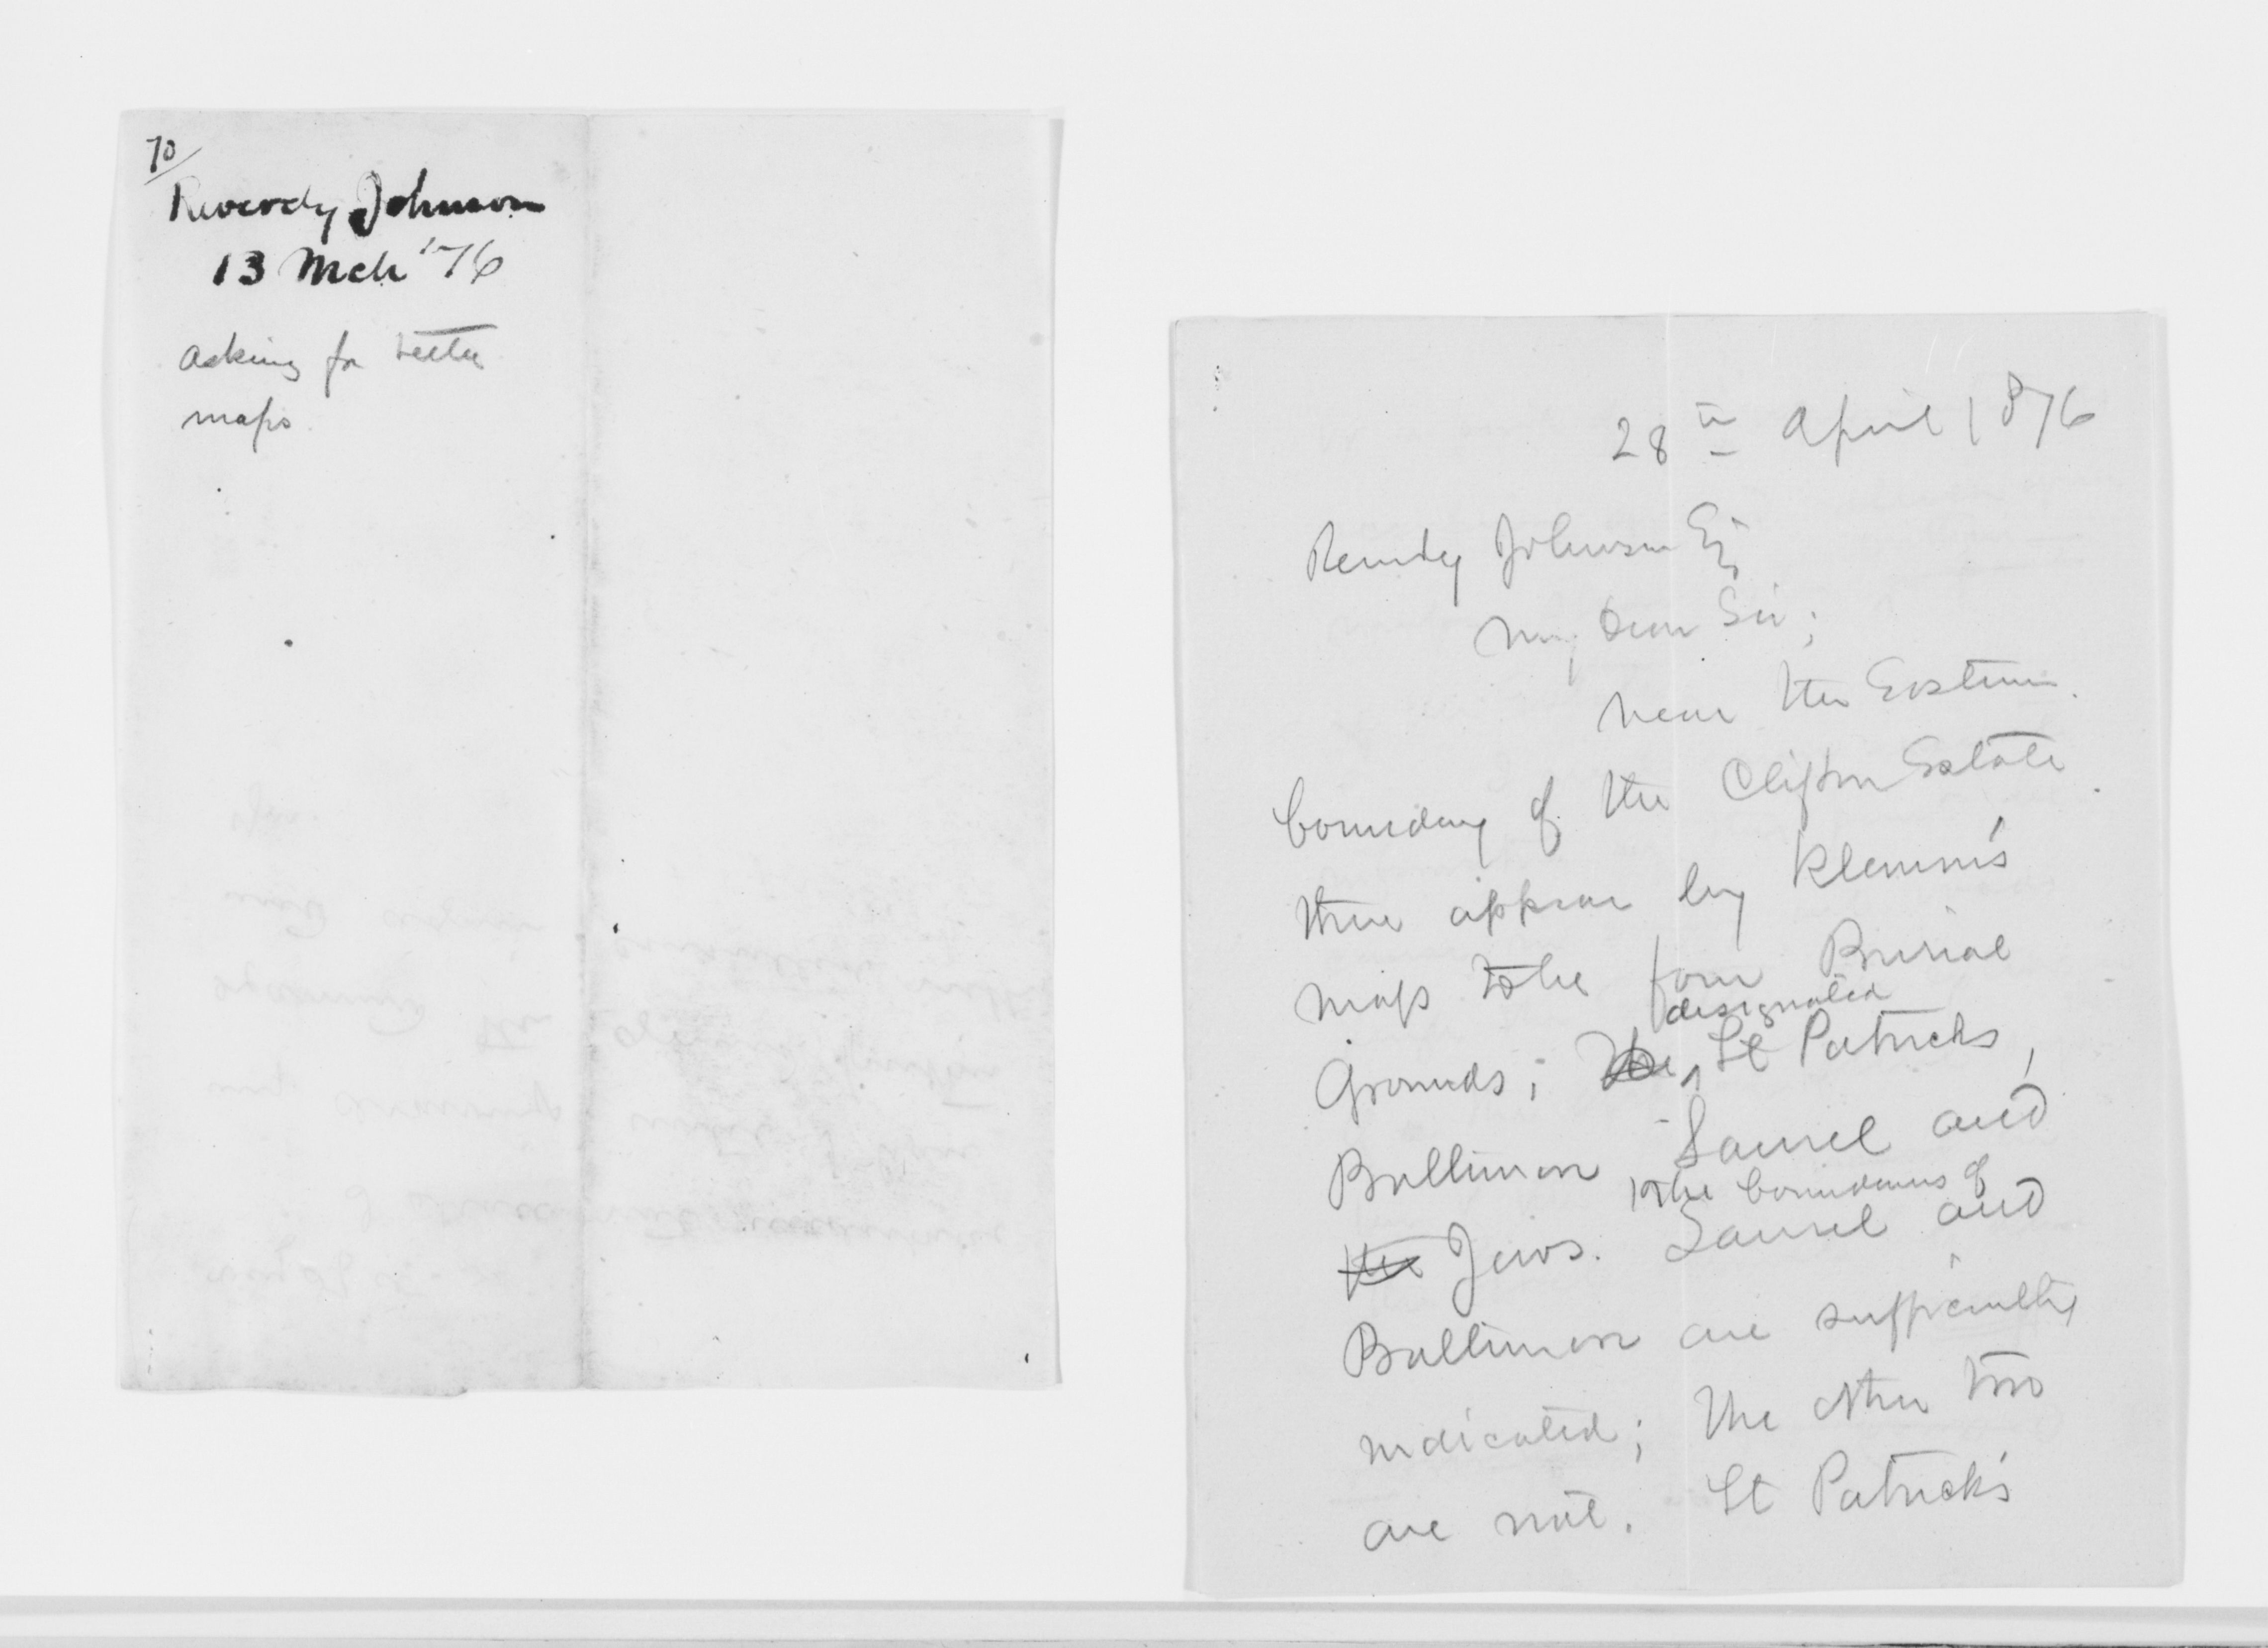 70
Reverdy Johnson
13 Mch '76
Asking for better
maps.
28th April 1876
Reverdy Johnson Esq
My Dear Sir;
Near the Eastern
boundary of the Clifton Estate
there appear by Klemm's
map to be four Burial
Grounds; The designated St Patricks,
Baltimore Laurel and
the Jews. The boundaries of Laurel and
Baltimore are sufficiently
indicated; the other two
are not. St Patrick's